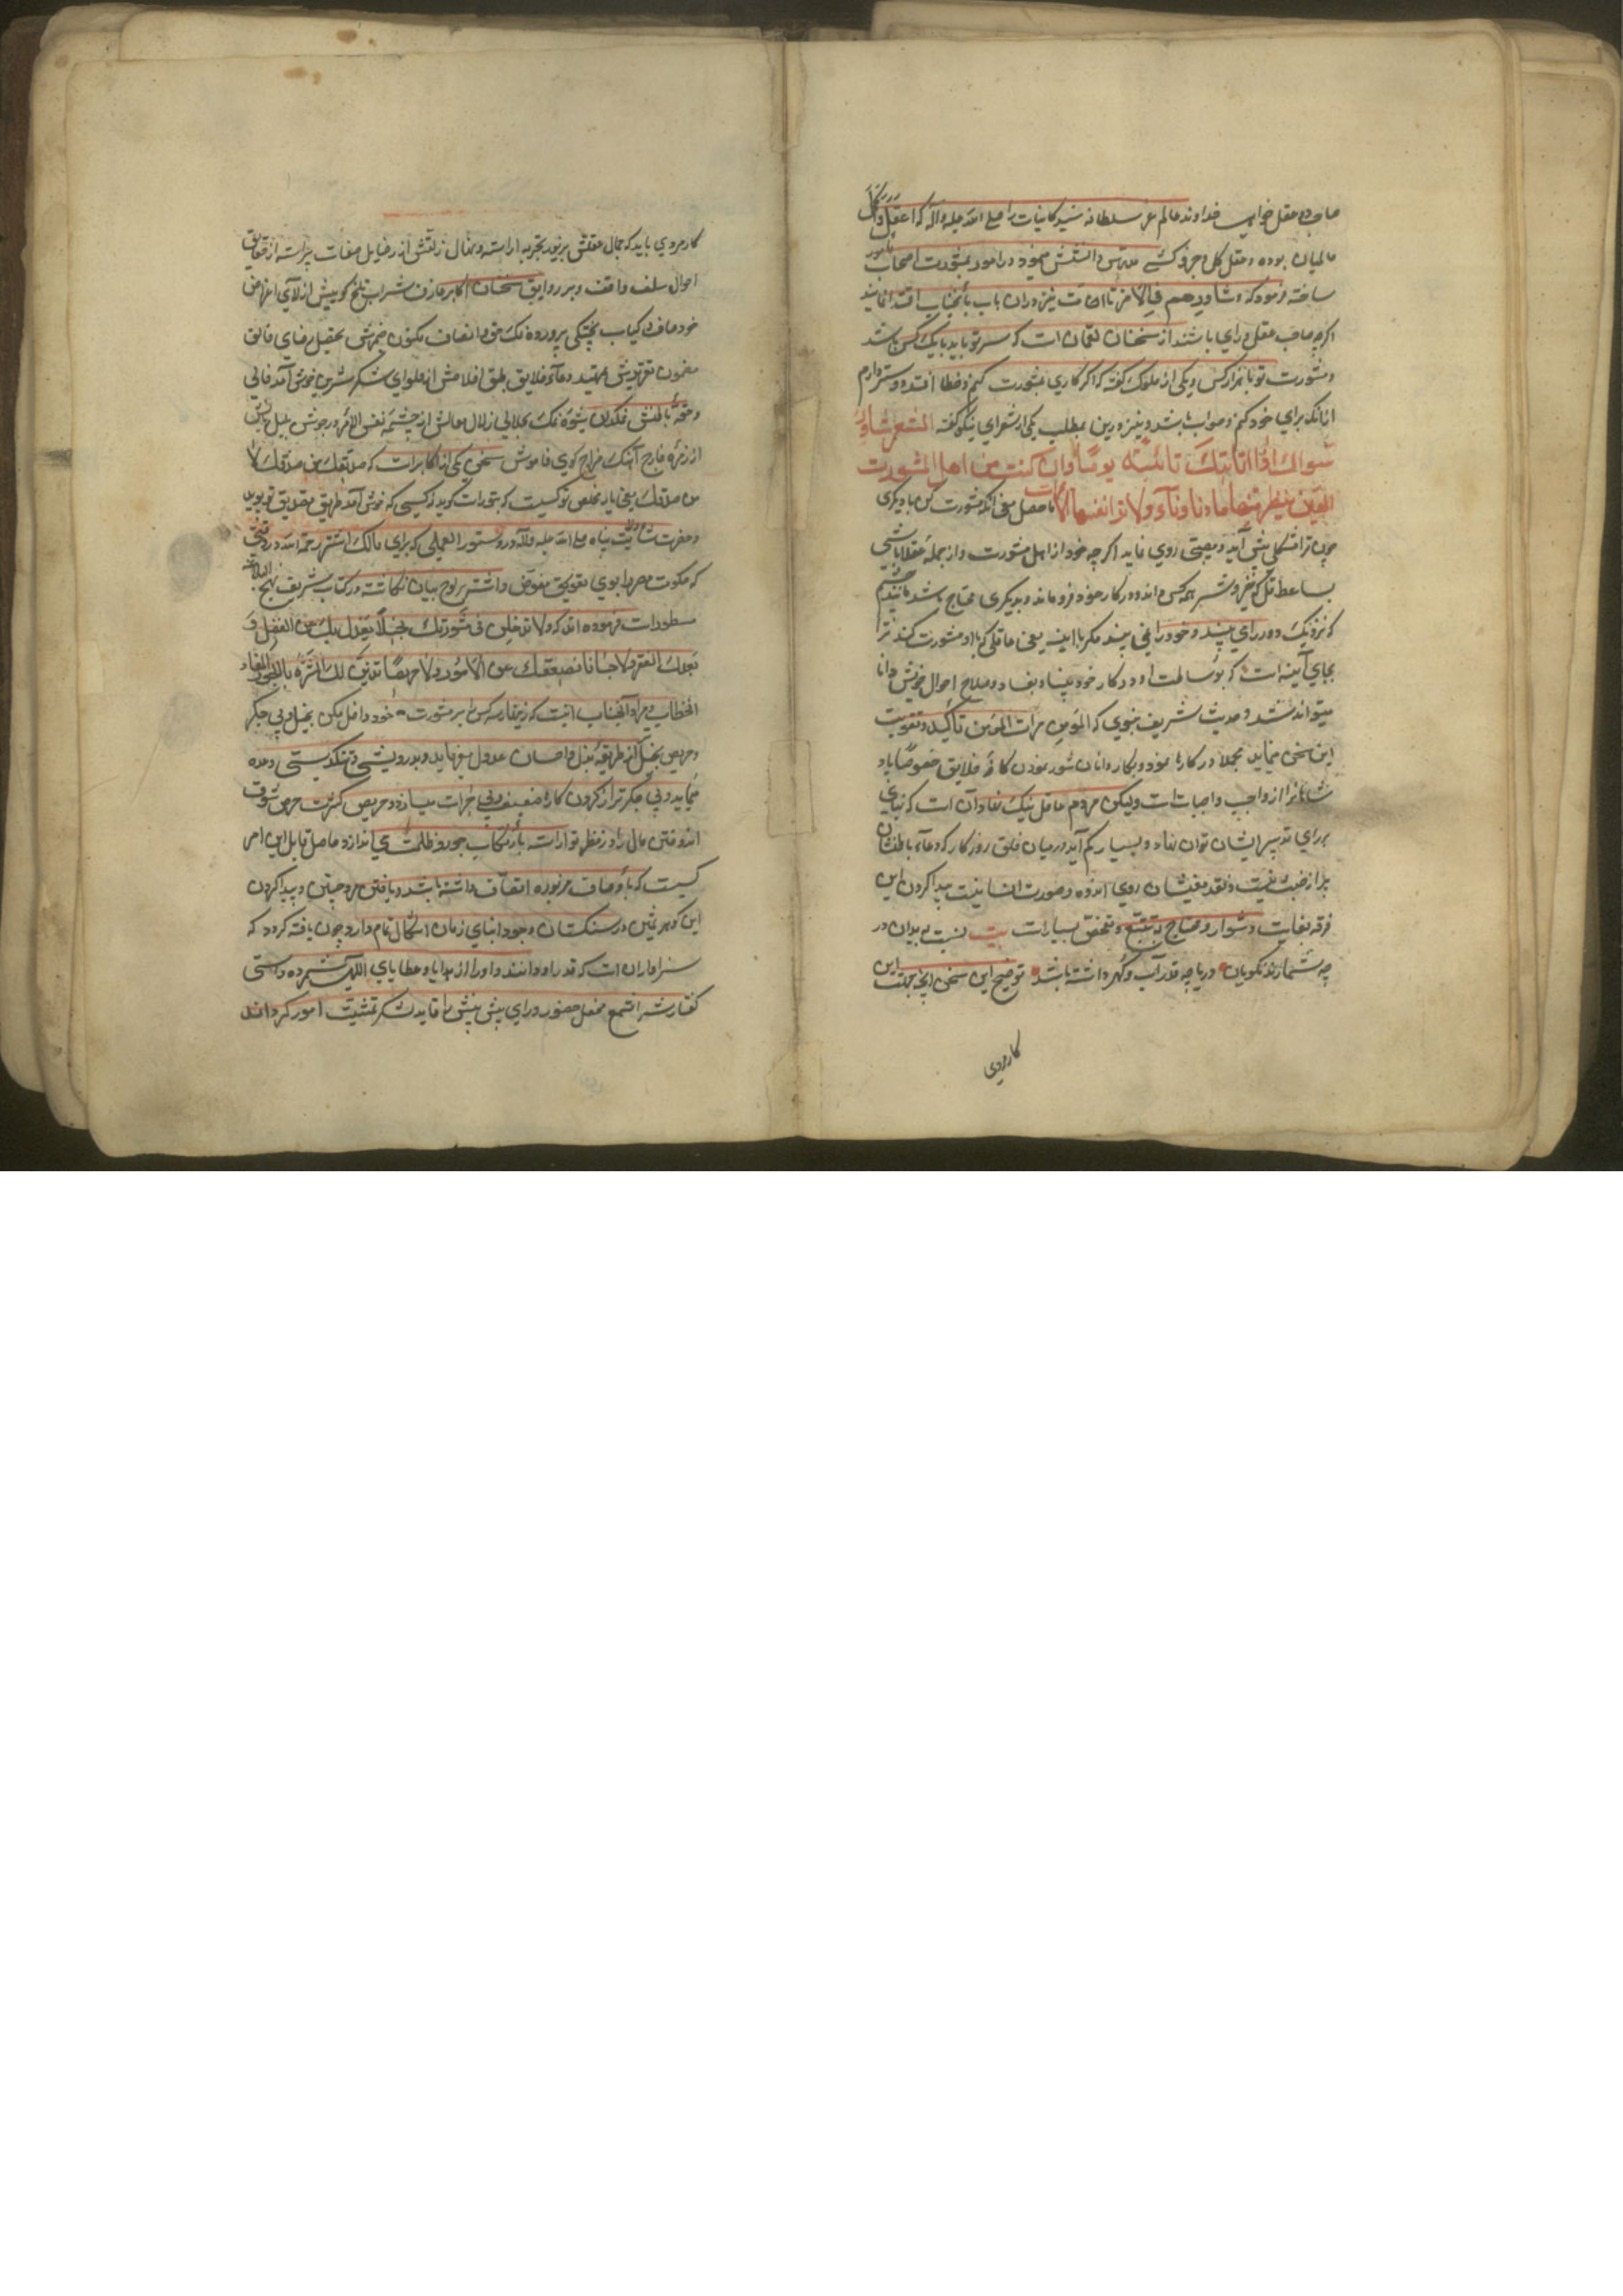 صاحب عقل خداوند عالم عز سلطانه سید کاینات را صلی الله علیه وآله که اعقل و اکمل
عالمیان بوده و عقل کل در امور بمشورت اصحاب مأمور
ساخته فرموده که وشاورهم فی الامر تا امت نیز در آن باب بآنجناب اقتدا نمایند
اگرچه صاحب عقل و رای باشند از سخنان لقمان است که سر تو باید با یک کس باشد
و مشورت تو با هزار کس و یکی از ملوک گفته که اگر کاری بمشورت کنم و خطا افتد دوستر دارم
از آنکه برای خود کنم و صواب باشد و نیز درین مطلب یکی از شعرای نیکو گفته الشعر شاور
سواک اذا نابتک نائبة یوما وان کنت من اهل المشورت
العین تنظر منها ما دنا ونآء ولا تری نفسها الا بمرآت ماحصل معنی آنکه مشورت کن با دیگری
چون ترا مشکلی پیش آید و مصیبتی روی نماید اگرچه خود از اهل مشورت و از جمله عقلا باشی
بسا عاقل که خیر و شر همه کس داند و در کار خود فرو ماند و بدیگری محتاج باشد مانند چشم
که نزدیک و دور را می بیند و خود را نمی بیند مگر با آینه یعنی عاقلی که با او مشورت کنند ترا
بجای آینه است که بوساطت او در کار خود بینا و بفساد و صلاح احوال خویش دانا
میتواند شد و حدیث شریف نبوی که المؤمن مرآت المؤمن تاکید و تقویت
این سخن مینماید مجملا در کارها نمودن کافه خلایق خصوصا پاد
شاهانرا از واجب واجبات است ولیکن مردم عاقل نیک نهاد آن است که بنای
بر رای و تدبیر ایشان توان نهاد و بسیار کم آید در میان خلق روزگار که وعاء باطنشان
پر از خبث نیست و نقد روی اندوده و صورت انسانیت پیدا کردن این
فرقه بغایت دشوار و محتاج به تتبع و تفحص بسیار است بیت نسبت به بدان در
چه شمارند نکویان دریا چه قدر آب و گهر داشته باشد توضیح این سخن آنچه بجهت این
کارمردی
کار مردی باید که جمال عقلش بزیور تجربه آراسته و نهال ذاتش از رذایل صفات پیراسته از حقایق
احوال سلف واقف و بر دقایق سخنان اکابر عارف شراب تلخ گوییش از لای اغراض
خود صاف و کباب پختگی پرورده نمک حق و انصاف مکنون ضمیرش تحصیل رضای خالق
مضمون تقریرش تمهید دعاء خلایق طبق اخلاصش از حلوای شکر شیرین خوش آمد خالی
از زمره خارج آهنگ مزاج گوی خاموش سخن یکی از اکابر است که صدیقک من صدقک لا
من صدقک یعنی یار مخلص تو کسیست که بتو راست گوید نه کسی که خوش آمد طریق تصدیق تو پوید
و حضرت ولایت پناه صلی الله علیه وآله در دستور العملی که برای مالک اشتر رحمه الله در وقتی
که حکومت مصر را بوی تفویض داشتند بر لوح بیان نگاشته و در کتاب شریف نهج البلاغه
مسطور است فرموده اند که ولا تدخلن فی مشورتک بخیلا یعدل بک عن الفضل و
یعدک الفقر ولا جبانا یضعفک عن الامور ولا حریصا یزین لک الشره بالجور انتهی
الخطاب و مراد آنجناب اینست که زینهار سه کس را در مشورت خود داخل مکن بخیل و بی جگر
و حریص بخیل از طریقه بذل و احسان عدول میفرماید و بدرویشی و تنگدستی وعده
مینماید و بی جگر ترا از کردن کارها ضعیف و بی جرات میسازد و حریص کثرت حرص و شوق
اندوختن مال را در نظر تو آراسته بارتکاب جور و ظلمت می اندازد حاصل قابل این امر
کسیست که باوصاف مزبوره اتصاف داشته باشد و یافتن مرد چنین و پیدا کردن
این گوهر ثمین در سنگستان وجود ابنای زمان اشکال تمام دارد و چون یافته گردد که
سزاوار آن است که قدر او دانند و او را از هدایا و عطایای الهی شمرده و راستی
گفتارش را شمع محفل حضور و رای پیش بینش را قاید لشکر تمشیت امور گردانند